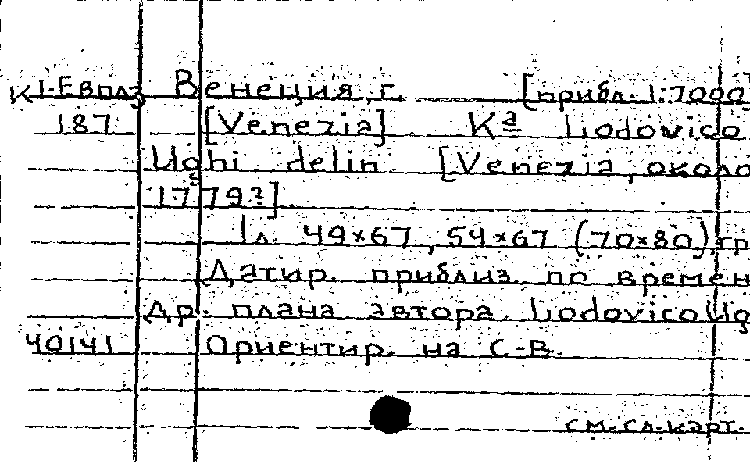 К1-Евпл3 Венеция, г. [прибл. 1:7000
187 [Venezia] Ка Lodovico
Ughi delin [Venezia, около
1779?]
1 л. 49×67, 54×67 (70×80), гр
Датир. приблиз. по времен
др. плана автора Lodovico Ug
40141 Ориентир. на С-В.
см. сл. карт.